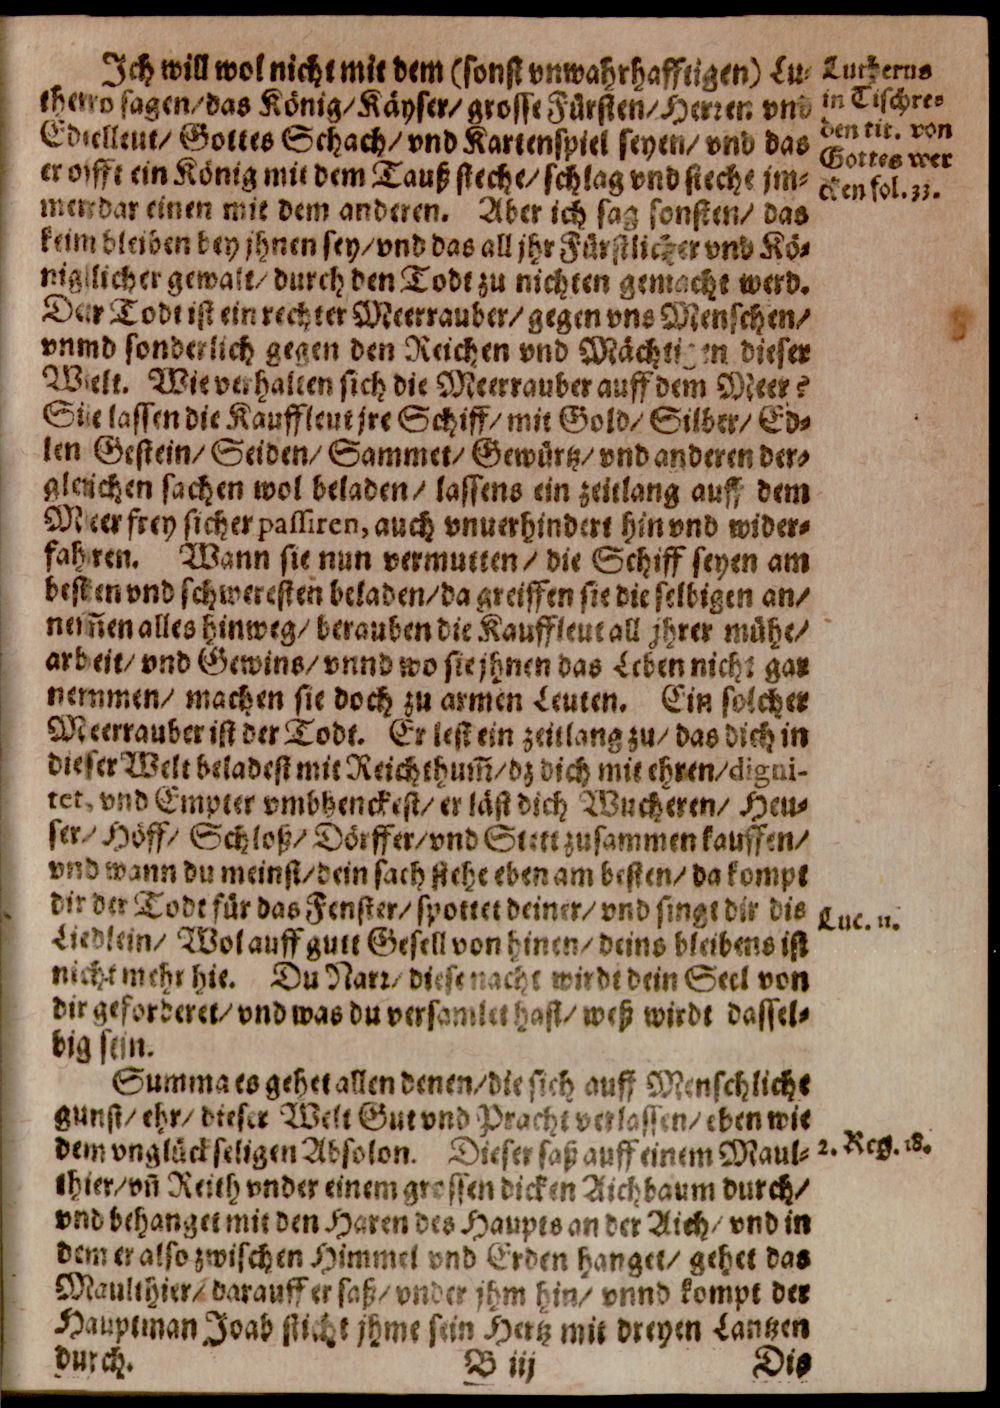 Ich will wol nicht mit dem (sonst vnwahrhafftigen) Lu-
thero sagen/ das König/ Käyser/ grosse Fürsten/ Herren vnd
Edelleut/ Gottes Schach/ vnd Kartenspiel seyen/ vnd das
er offt ein König mit dem Tauß steche/ schlag vnd steche jm-
merdar einen mit dem anderen. Aber ich sag sonsten/ das
keim bleiben bey jhnen sey/ vnd das all jhr Fürstlicher vnd Kö-
niglicher gewalt/ durch den Todt zu nichten gemacht werd.
Der Todt ist ein rechter Meerrauber/ gegen vns Menschen/
vnnd sonderlich gegen den Reichen vnd Mächtigen dieser
Welt. Wie verhalten sich die Meerrauber auff dem Meer?
Sie lassen die Kauffleut jre Schiff/ mit Gold/ Silber/ Ed-
len Gestein/ Seiden/ Sammet/ Gewürtz/ vnd anderen der-
gleichen sachen wol beladen/ lassens ein zeitlang auff dem
Meer frey sicher passiren, auch vnuerhindert hin vnd wider-
fahren. Wann sie nun vermutten/ die Schiff seyen am
besten vnd schweresten beladen/ da greiffen sie die selbigen an/
nem̄en alles hinweg/ berauben die Kauffleut all jhrer mühe/
arbeit/ vnd Gewins/ vnnd wo sie jhnen das Leben nicht gar
nemmen/ machen sie doch zu armen Leuten. Ein solcher
Meerrauber ist der Todt. Er lest ein zeitlang zu/ das dich in
dieser Welt beladest mit Reichthum̄/ dz dich mit ehren/ digni-
tet, vnd Empter vmbhenckest/ er läst dich Wucheren/ Heu-
ser/ Höff/ Schloß/ Dörffer/ vnd Stett zusammen kauffen/
vnd wann du meinst/ dein sach stehe eben am besten/ da kompt
dir der Todt für das Fenster/ spottet deiner/ vnd singt dir dis
Liedlein/ Wol auff gutt Gesell von hinen/ deins bleibens ist
nicht mehr hie. Du Narr/ diese nacht wirdt dein Seel von
dir geforderet/ vnd was du versamlet hast/ weß wirdt dassel-
big sein.
Summa es gehet allen denen/ die sich auff Menschliche
gunst/ ehr/ dieser Welt Gut vnd Pracht verlassen/ eben wie
dem vnglückseligen Absolon. Dieser saß auff einem Maul-
thier/ vn̄ Reith vnder einem grossen dicken Aichbaum durch/
vnd behanget mit den Haren des Haupts an der Aich/ vnd in
dem er also zwischen Himmel vnd Erden hanget/ gehet das
Maulthier/ darauff er saß/ vnder jhm hin/ vnnd kompt der
Hauptman Joab sticht jhme sein Hertz mit dreyen Lantzen
durch.
B iij
Dis
Lutherus
in Tischre-
den tit. von
Gottes wer
cken fol. 33.
Luc. 11.
2. Reg. 18.